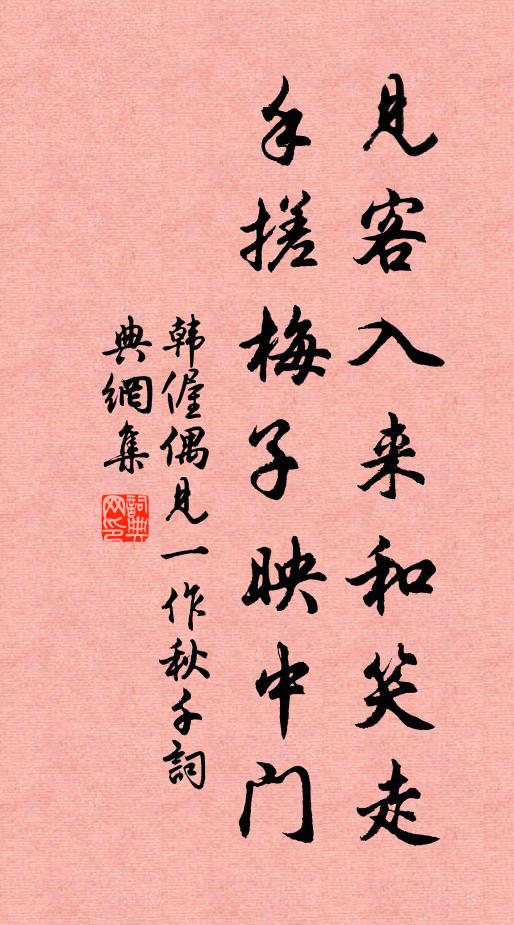 见客入来和笑走
手搓梅子映中门
韩偓偶见一作秋千詞
典網集
詞典网印